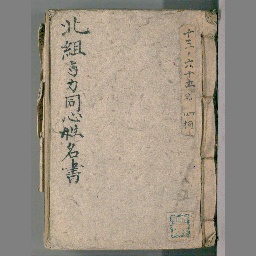 北組与力同心姓名書
十三ノ六十五